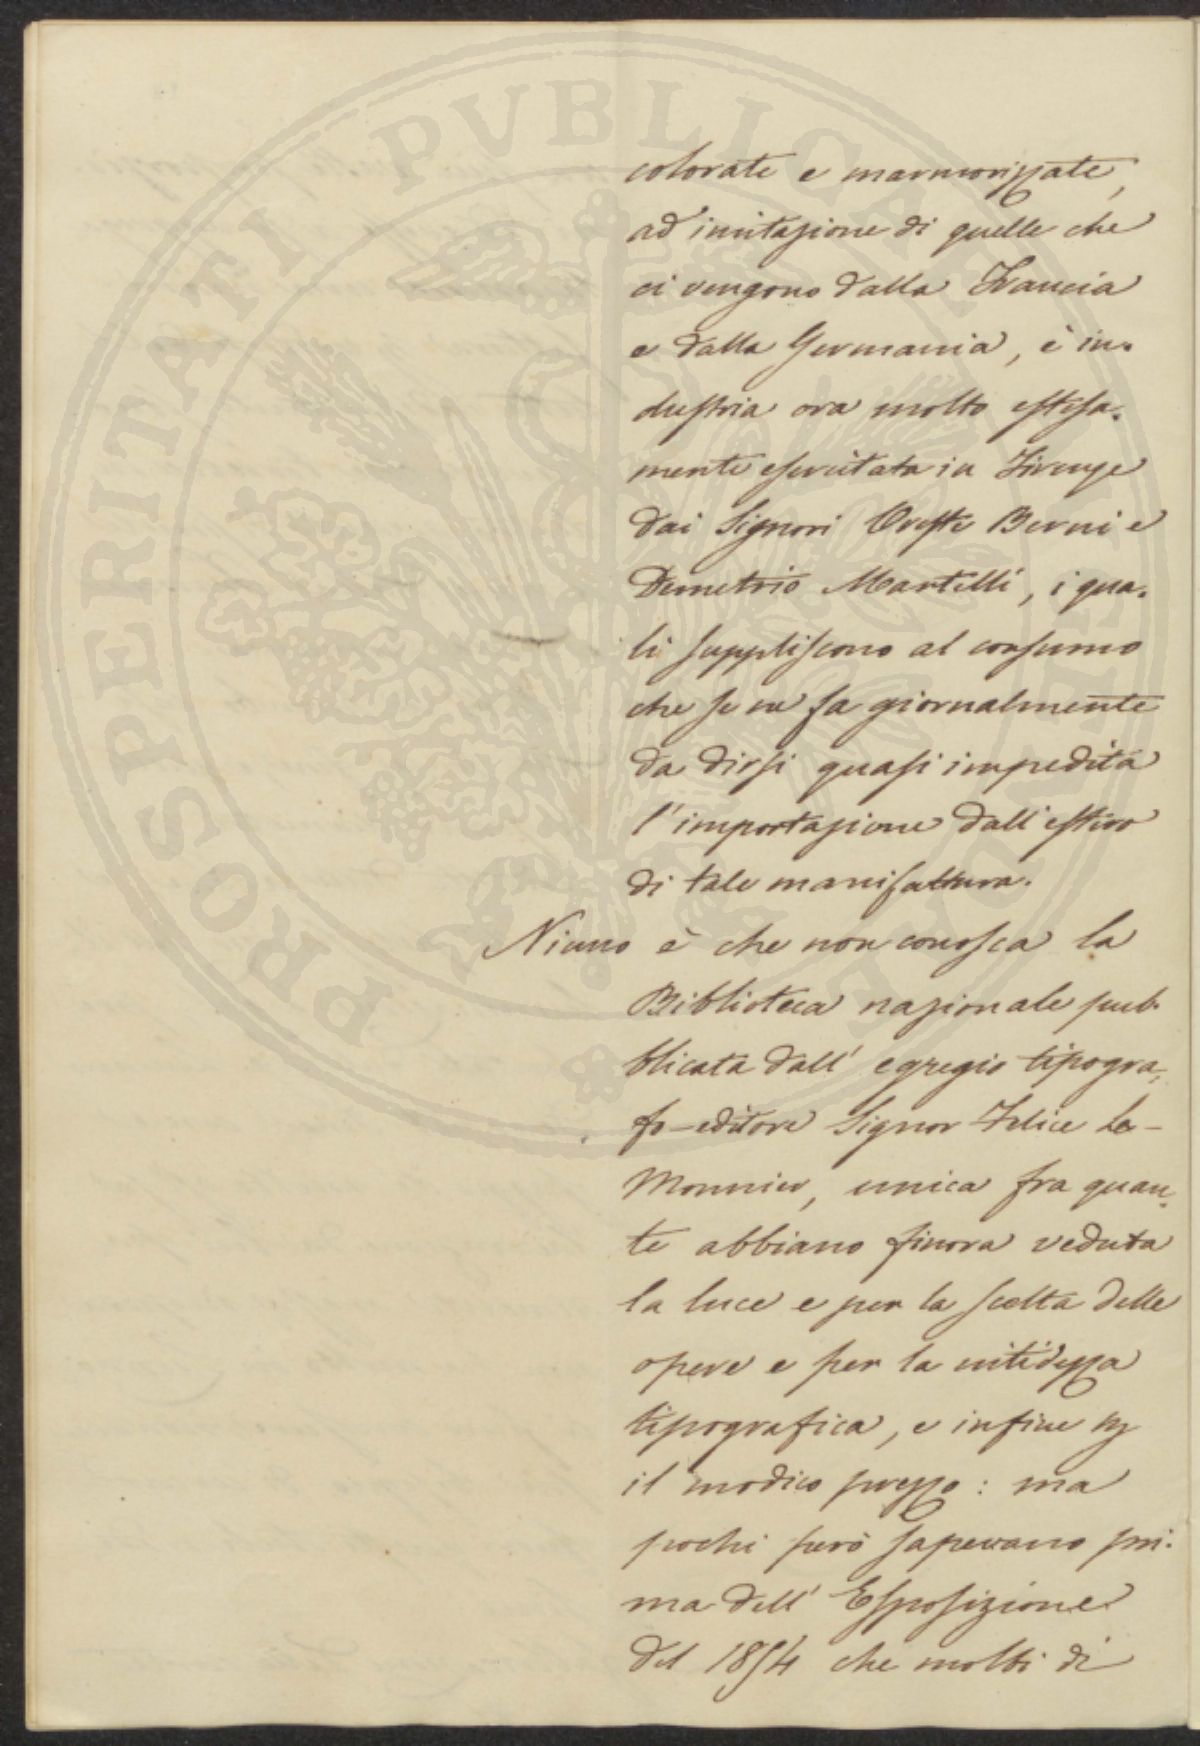 colorate e marmorizzate,
ad imitazione di quelle che
ci vengono dalla Francia
e dalla Germania, è in-
dustria ora molto estesa-
mente esercitata in Firenze
dai Signori Oreste Berni e
Demetrio Martelli, i qua-
li suppliscono al consumo
che se ne fa giornalmente
da dirsi quasi impedita
l'importazione dall'estero
di tale manifattura.
Niuno è che non conosca la
Biblioteca nazionale pub-
blicata dall'egregio tipogra-
fo-editore Signor Felice Le-
Monnier, unica fra quan-
te abbiano finora veduta
la luce e per la scelta delle
opere e per la nitidezza
tipografica, e infine per
il modico prezzo: ma
pochi però sapevano pri-
ma dell'Esposizione
del 1854 che molti di
PROSPERITATI PVBLICAE AVGENDAE